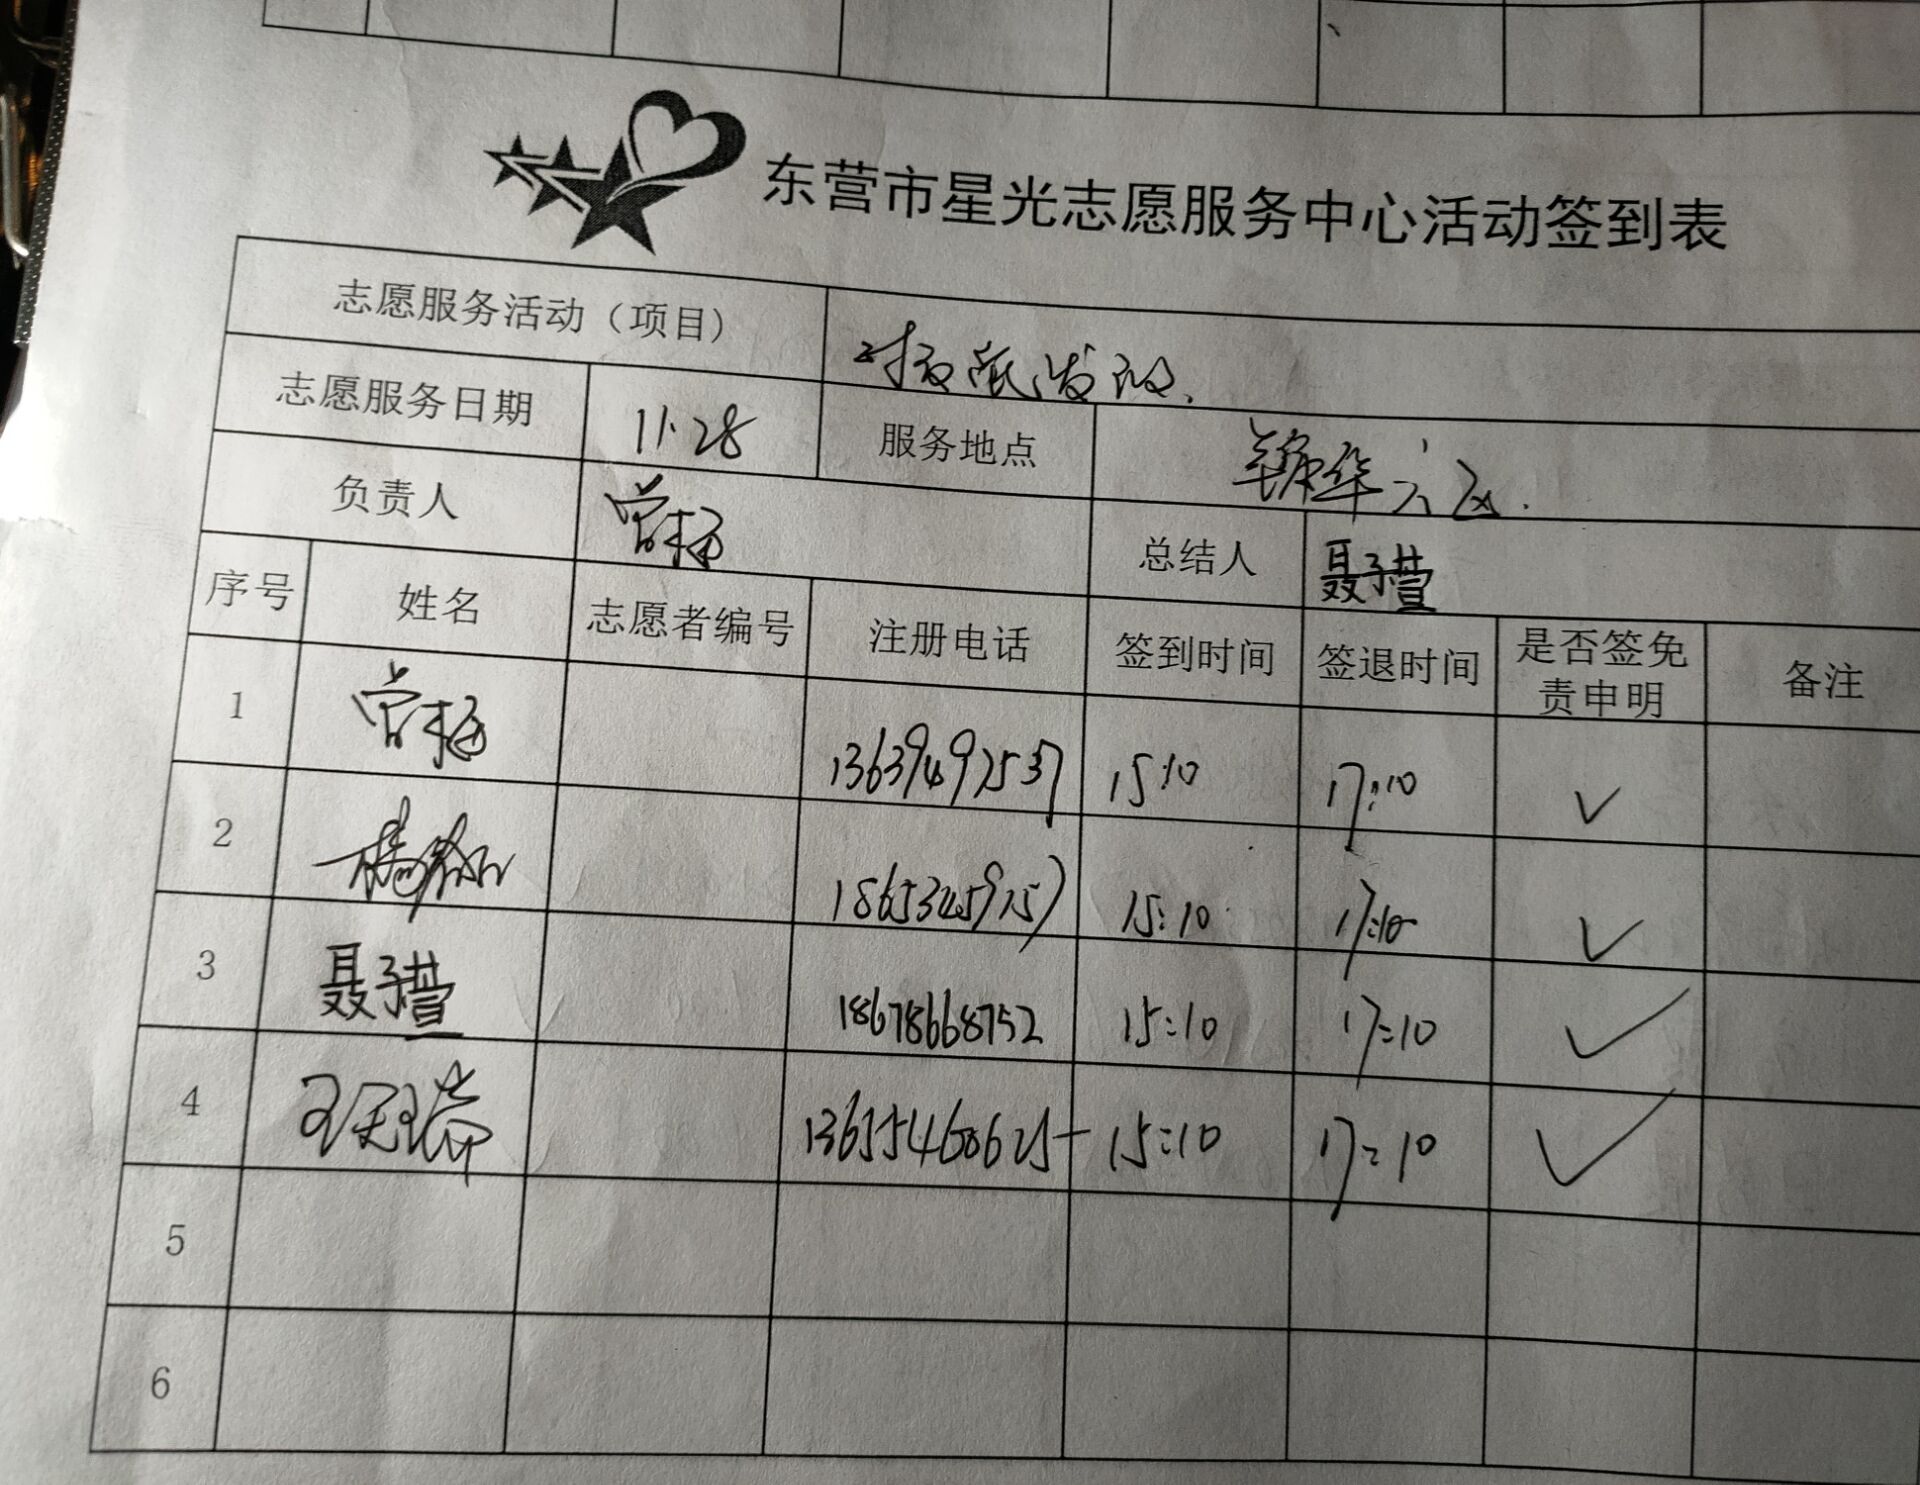 东营市星光志愿服务中心活动签到表
志愿服务活动（项目）
志愿服务日期 11.28 服务地点 锦华六区.
负责人 总结人 聂子萱
序号 姓名 志愿者编号 注册电话 签到时间 签退时间 是否签免责申明 备注
1 13639492537 15:10 17:10 ✓
2 18653459157 15:10 17:10 ✓
3 聂子萱 18678668752 15:10 17:10 ✓
4 王天瑞 15:10 17:10 ✓
5
6